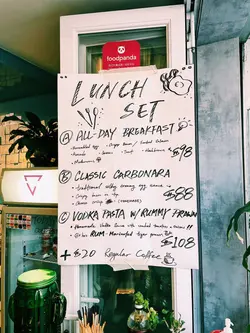 foodpanda
LUNCH
SET
A ALL-DAY BREAKFAST
Scrambled egg · Crispy Bacon / Smoked Salmon
Tomato · · Toast ·
Mushrooms
$98
B CLASSIC CARBONARA
· traditional silky creamy egg sauce
· Crispy bacon on top
· Cheese crisp (homemade)
$88
C VODKA PASTA W/ RUMMY PRAWN
· Homemade Vodka Sauce with sauteed tomatoes & onions !!
· Grilled RUM-Marinated tiger prawns
$108
+ $20 Regular Coffee